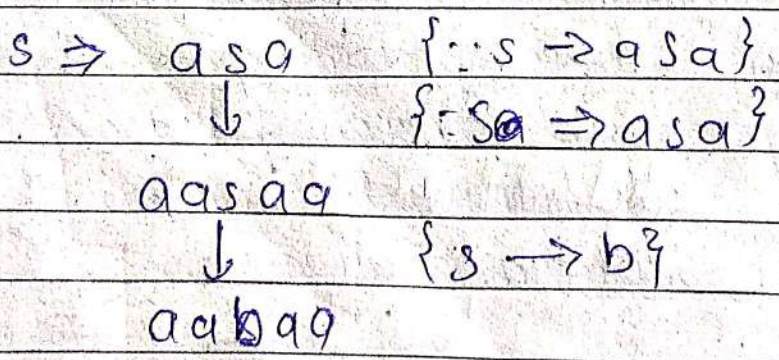 s ⇒ asa {∵ s → asa}
↓ {∵ S ⇒ asa}
aasaa
↓ {s → b}
aabaa